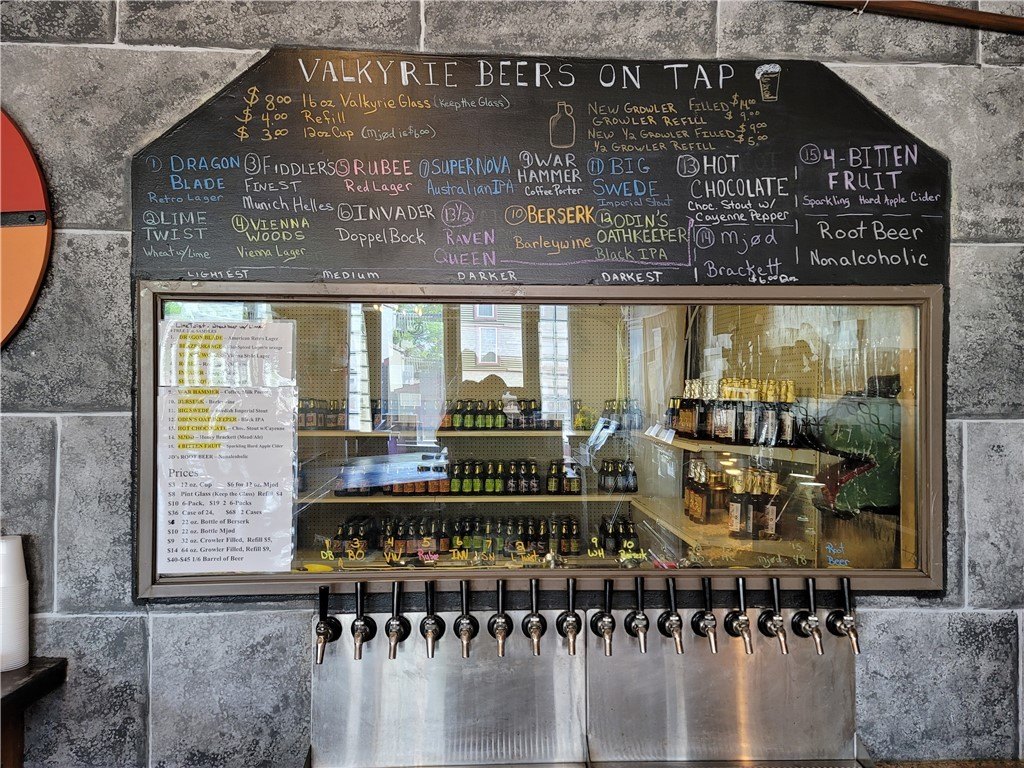 VALKYRIE BEERS ON TAP
$8.00 16oz Valkyrie Glass (Keep the Glass)
$4.00 Refill
$3.00 12oz Cup (Mjød is $6.00)
NEW GROWLER FILLED $14.00
GROWLER REFILL $9.00
NEW 1/2 GROWLER FILLED $9.00
1/2 GROWLER REFILL $5.00
① DRAGON
BLADE
Retro Lager
② LIME
TWIST
Wheat w/Lime
③ FIDDLERS
FINEST
Munich Helles
④ VIENNA
WOODS
Vienna Lager
⑤ RUBEE
Red Lager
⑥ INVADER
DoppelBock
⑦ SUPERNOVA
Australian IPA
13½
RAVEN
QUEEN
⑨ WAR
HAMMER
Coffee Porter
⑩ BERSERK
Barleywine
⑪ BIG
SWEDE
Imperial Stout
⑫ ODIN'S
OATHKEEPER
Black IPA
⑬ HOT
CHOCOLATE
Choc. Stout w/
Cayenne Pepper
⑭ Mjød
Brackett
$6.00 12oz
⑮ 4-BITTEN
FRUIT
Sparkling Hard Apple Cider
Root Beer
Nonalcoholic
LIGHTEST MEDIUM DARKER DARKEST
DRAGON BLADE - American Retro Lager
WAR HAMMER - Coffee, Milk Porter
10. BERSERK - Barleywine
11. BIG SWEDE - Swedish Imperial Stout
12. ODIN'S OATHKEEPER - Black IPA
13. HOT CHOCOLATE - Choc. Stout w/Cayenne
14. MJOD - Honey Brackett (Mead/Ale)
4 BITTEN FRUIT - Sparkling Hard Apple Cider
JD's ROOT BEER - Nonalcoholic
Prices
$3 12 oz. Cup $6 for 12 oz. Mjod
$8 Pint Glass (Keep the Glass) Refill $4
$10 6-Pack, $19 2 6-Packs
$36 Case of 24, $68 2 Cases
22 oz. Bottle of Berserk
$10 22 oz. Bottle Mjod
$9 32 oz. Crowler Filled, Refill $5,
$14 64 oz. Growler Filled, Refill $9,
$40-$45 1/6 Barrel of Beer
1 DB
3 BO
4 VW
5 Rube
6 INV
7 SN
9 WH
10 Berserk
Root
Beer